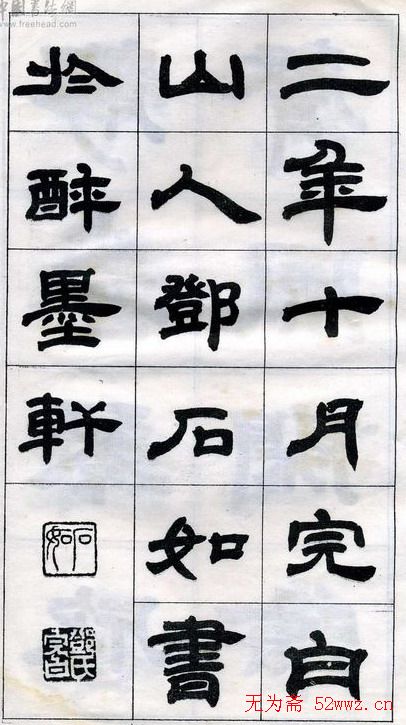 二年十月完白
山人鄧石如書
於醉墨軒
石如
鄧氏完白
www.freehead.com
无为斋 52wwz.cn